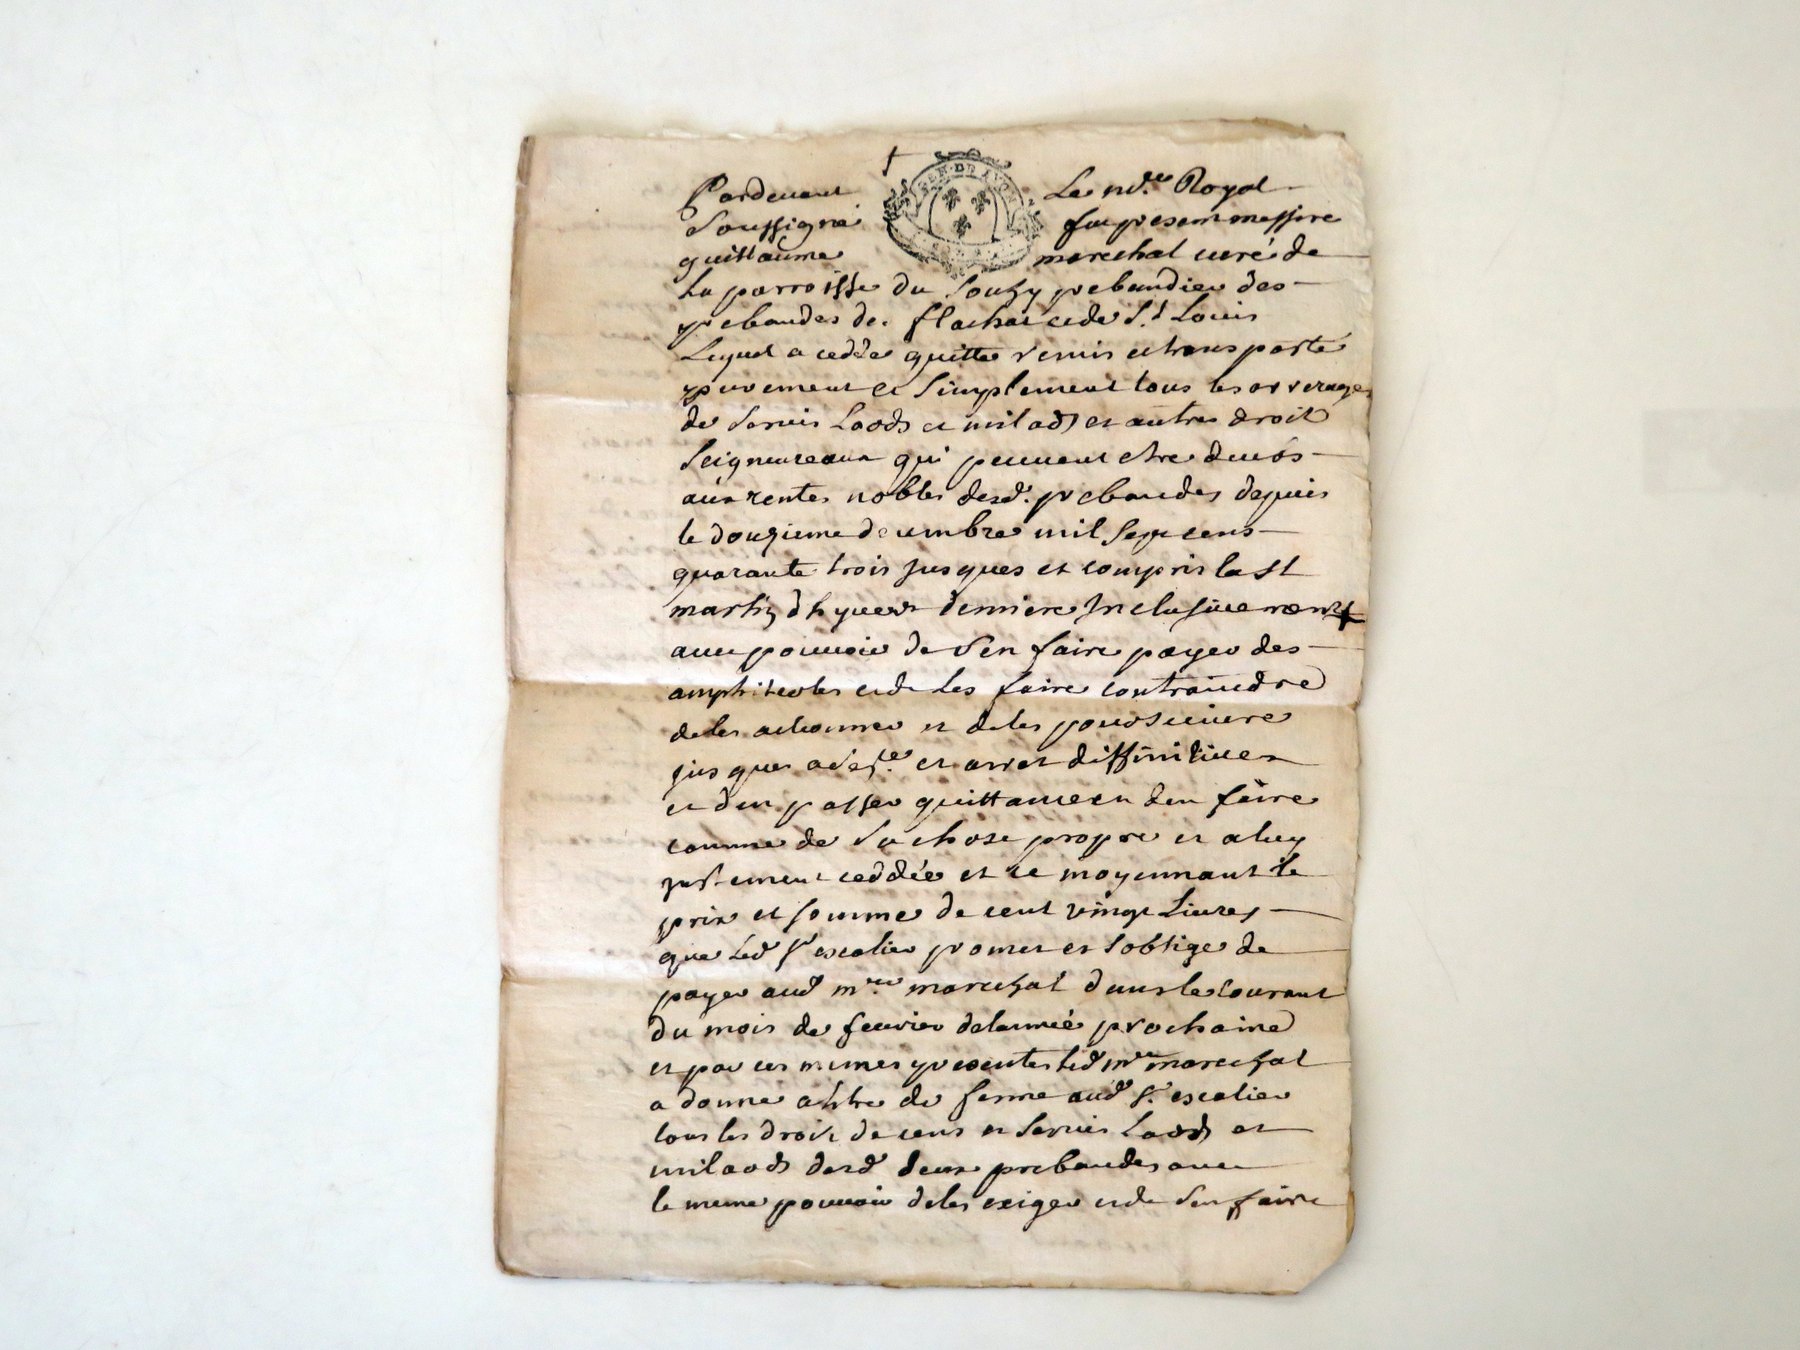 GEN · DE LYON
Pardevant Le no.re Royal
Soussigné fut present messire
guillaume marechal curé de
La parroisse du Souzy prebandier des
prebandes de flachat et de S.t Louis
Lequel a ceddé quitté remis et transporté
purement et Simplement tous les arrerages
de Servis Laods et milads et autres droit
Seigneureaux qui peuvent etre deues
aux rentes nobles desd. prebandes depuis
le douzieme decembre mil Sept cens
quarante trois Jusques et compris la St
martin dhyvert derniere Inclusivement
avec pouvoir de Sen faire payer des
amphiteotes et de les faire contraindre
de les actionner et de les poursuivre
jusques a Se.ce et arret diffinitives
et den passer quittance en den faire
comme de Sa chose propre et a luy
justement ceddée et ce moyennant le
prix et somme de cent vingt Livres
que Led Sr escalier promet et Soblige de
payer aud m.re marechal dans le courant
du mois de fevrier delannée prochaine
et par ces memes presentes led m.re marechal
a donné a titre de ferme aud S.r escalier
tous les droit de cens et Servis Laods et
milaods desd deux prebandes avec
le meme pouvoir de les exiger et de Sen faire